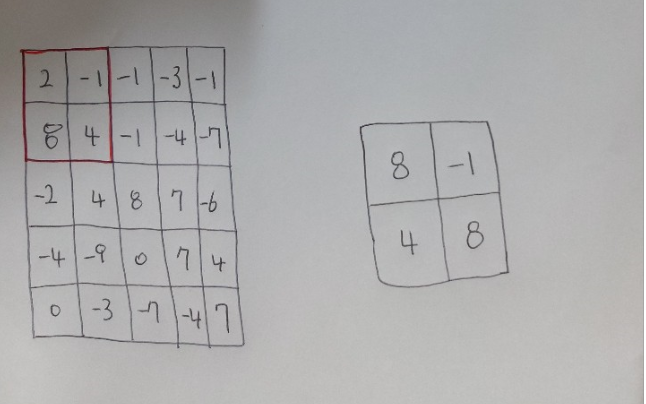 2 -1 -1 -3 -1
8 4 -1 -4 -7
-2 4 8 7 -6
-4 -9 0 7 4
0 -3 -7 -4 7
8 -1
4 8